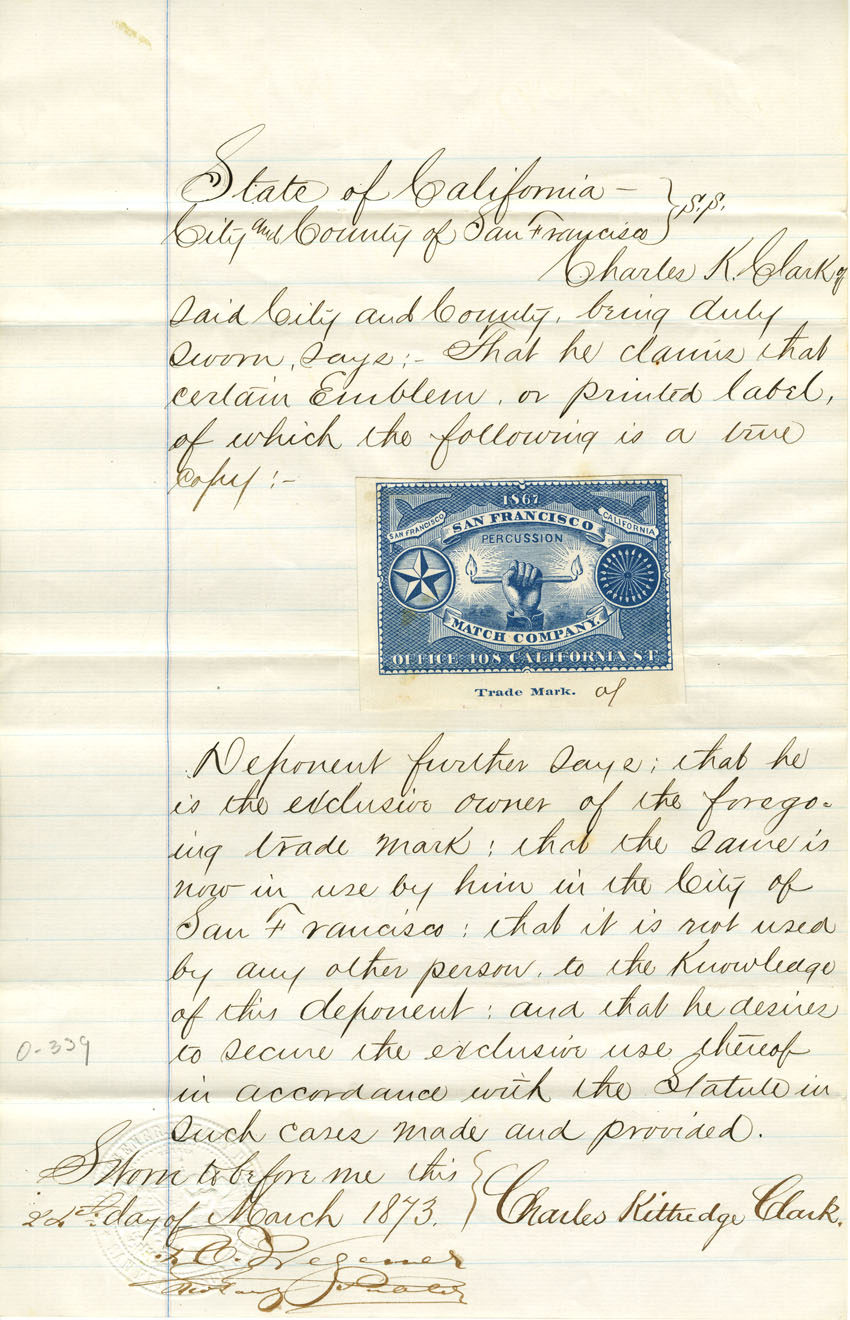 State of California –
City and County of San Francisco } S.S.
Charles K. Clark of
said City and County, being duly
sworn, says:- That he claims that
certain Emblem, or printed label,
of which the following is a true
copy:-
1867
SAN FRANCISCO
SAN FRANCISCO
CALIFORNIA
PERCUSSION
MATCH COMPANY.
OFFICE 408 CALIFORNIA ST.
Trade Mark. of
Deponent further says; that he
is the exclusive owner of the forego-
ing trade mark; that the same is
now in use by him in the City of
San Francisco; that it is not used
by any other person, to the Knowledge
of this deponent: and that he desires
to secure the exclusive use thereof
in accordance with the Statute in
such cases made and provided.
0-339
Sworn to before me this
day of March 1873. } Charles Kittredge Clark.
Notary Public